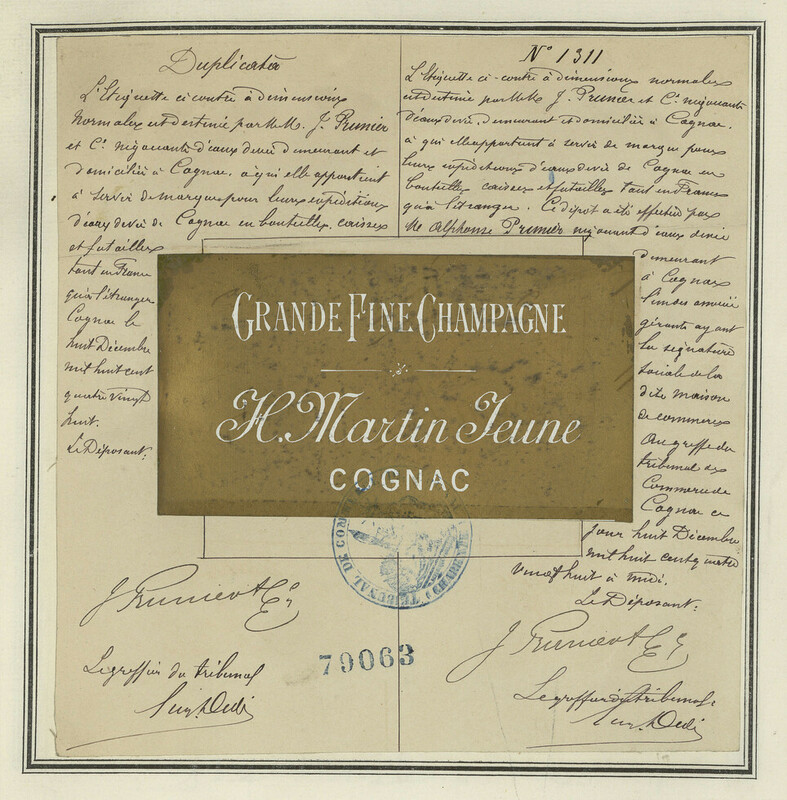 Duplicata
L'Etiquette ci contre à dimensions
normales est destinée par M.M. J. Prunier
et Cie négociants d'eaux de vie demeurant et
domiciliés à Cognac, à qui elle appartient
à servir de marque pour leurs expéditions
d'eaux de vie de Cognac en bouteilles, caisses
et futailles
tant en France
qu'à l'étranger
Cognac le
huit Décembre
mil huit cent
quatre vingt
huit.
Le Déposant:
J. Prunier & Cie
Le greffier du tribunal
N° 1311
L'Etiquette ci-contre à dimensions normales
est destinée par M.M. J. Prunier et Cie négociants
d'eaux de vie, demeurant et domiciliés à Cognac,
à qui elle appartient à servir de marque pour
leurs expéditions d'eaux de vie de Cognac en
bouteilles caisses et futailles tant en France
qu'à l'étranger. Ce dépôt a été effectué par
M. Alphonse Prunier négociant d'eaux de vie
demeurant
à Cognac
l'un des associés
gérants ayant
la signature
sociale de la
dite maison
de commerce
Au greffe du
tribunal de
Commerce de
Cognac ce
jour huit Décembre
mil huit cent quatre
vingt huit à midi.
Le Déposant:
J. Prunier & Cie
Le greffier du tribunal
GRANDE FINE CHAMPAGNE
H. Martin Jeune
COGNAC
TRIBUNAL DE COM
79063